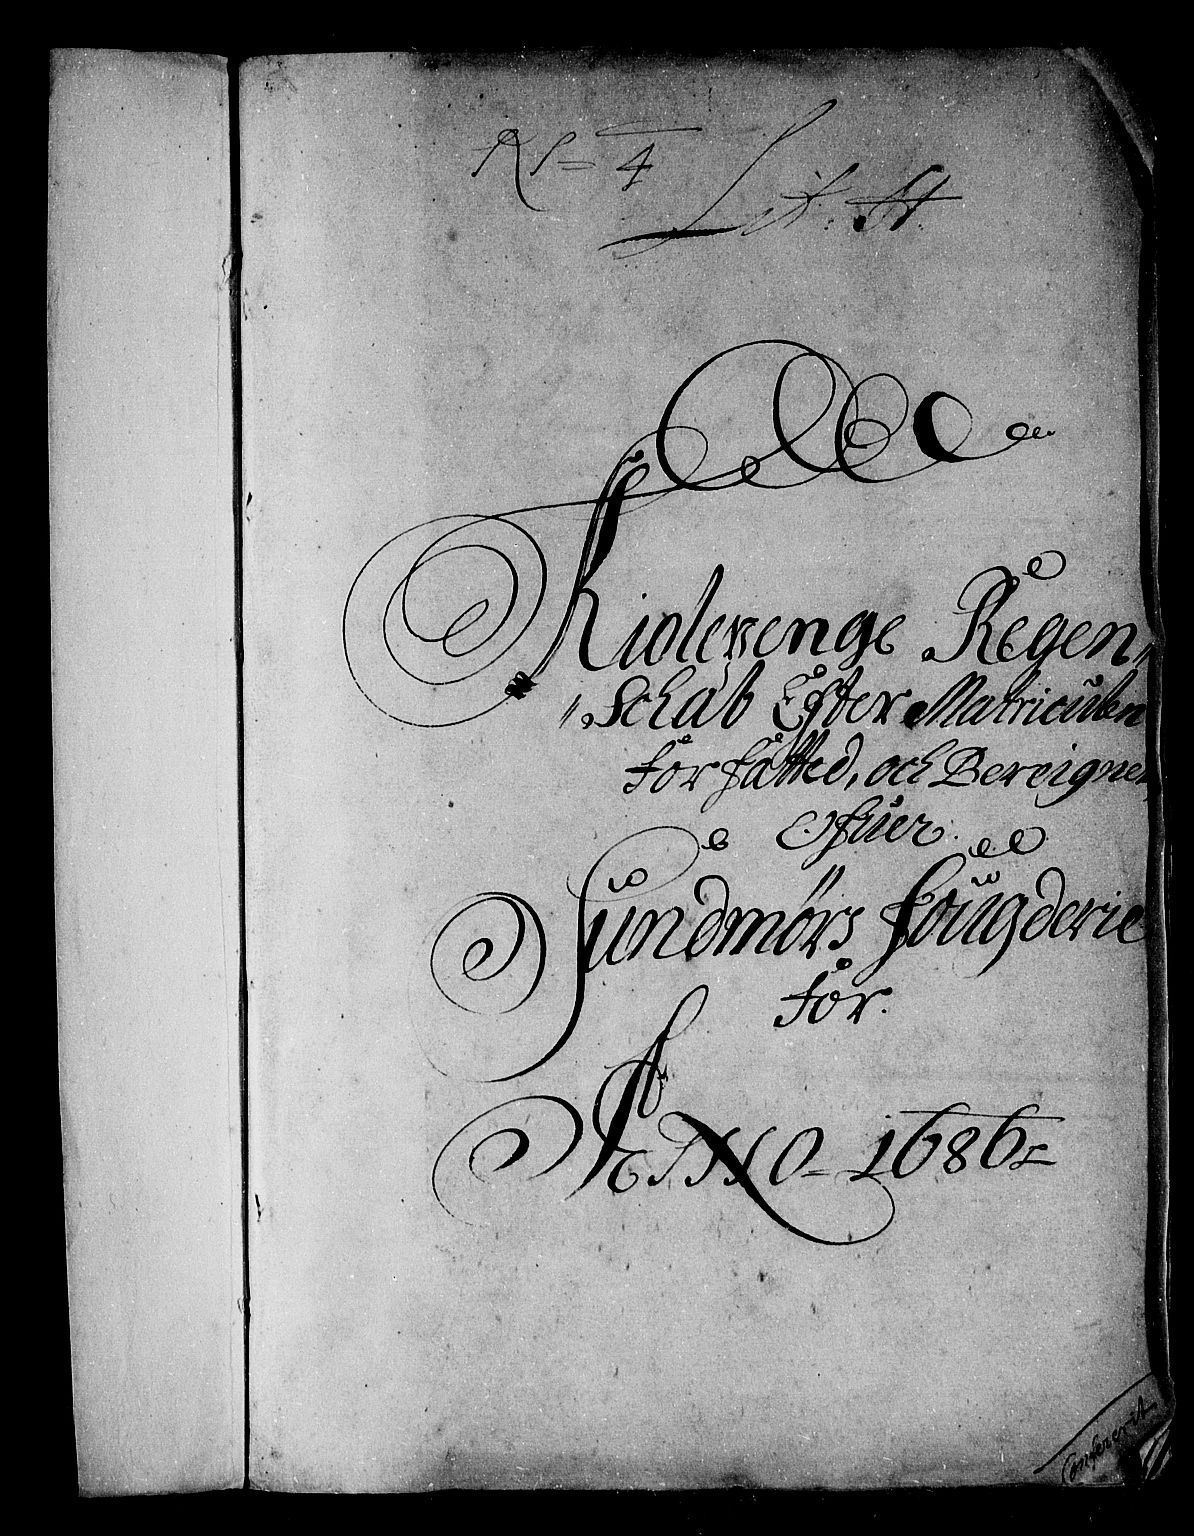 N 4
Lit: A.
Kiolerenge Regen„
„Schab Efter Matriculen
forfatted, och Bereignet
Ofuer
Sundmørs Fougderie
for.
ANNO 1686
Confererit